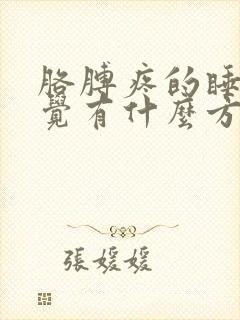 胳膊疼的睡
覺有什麼方
張媛媛